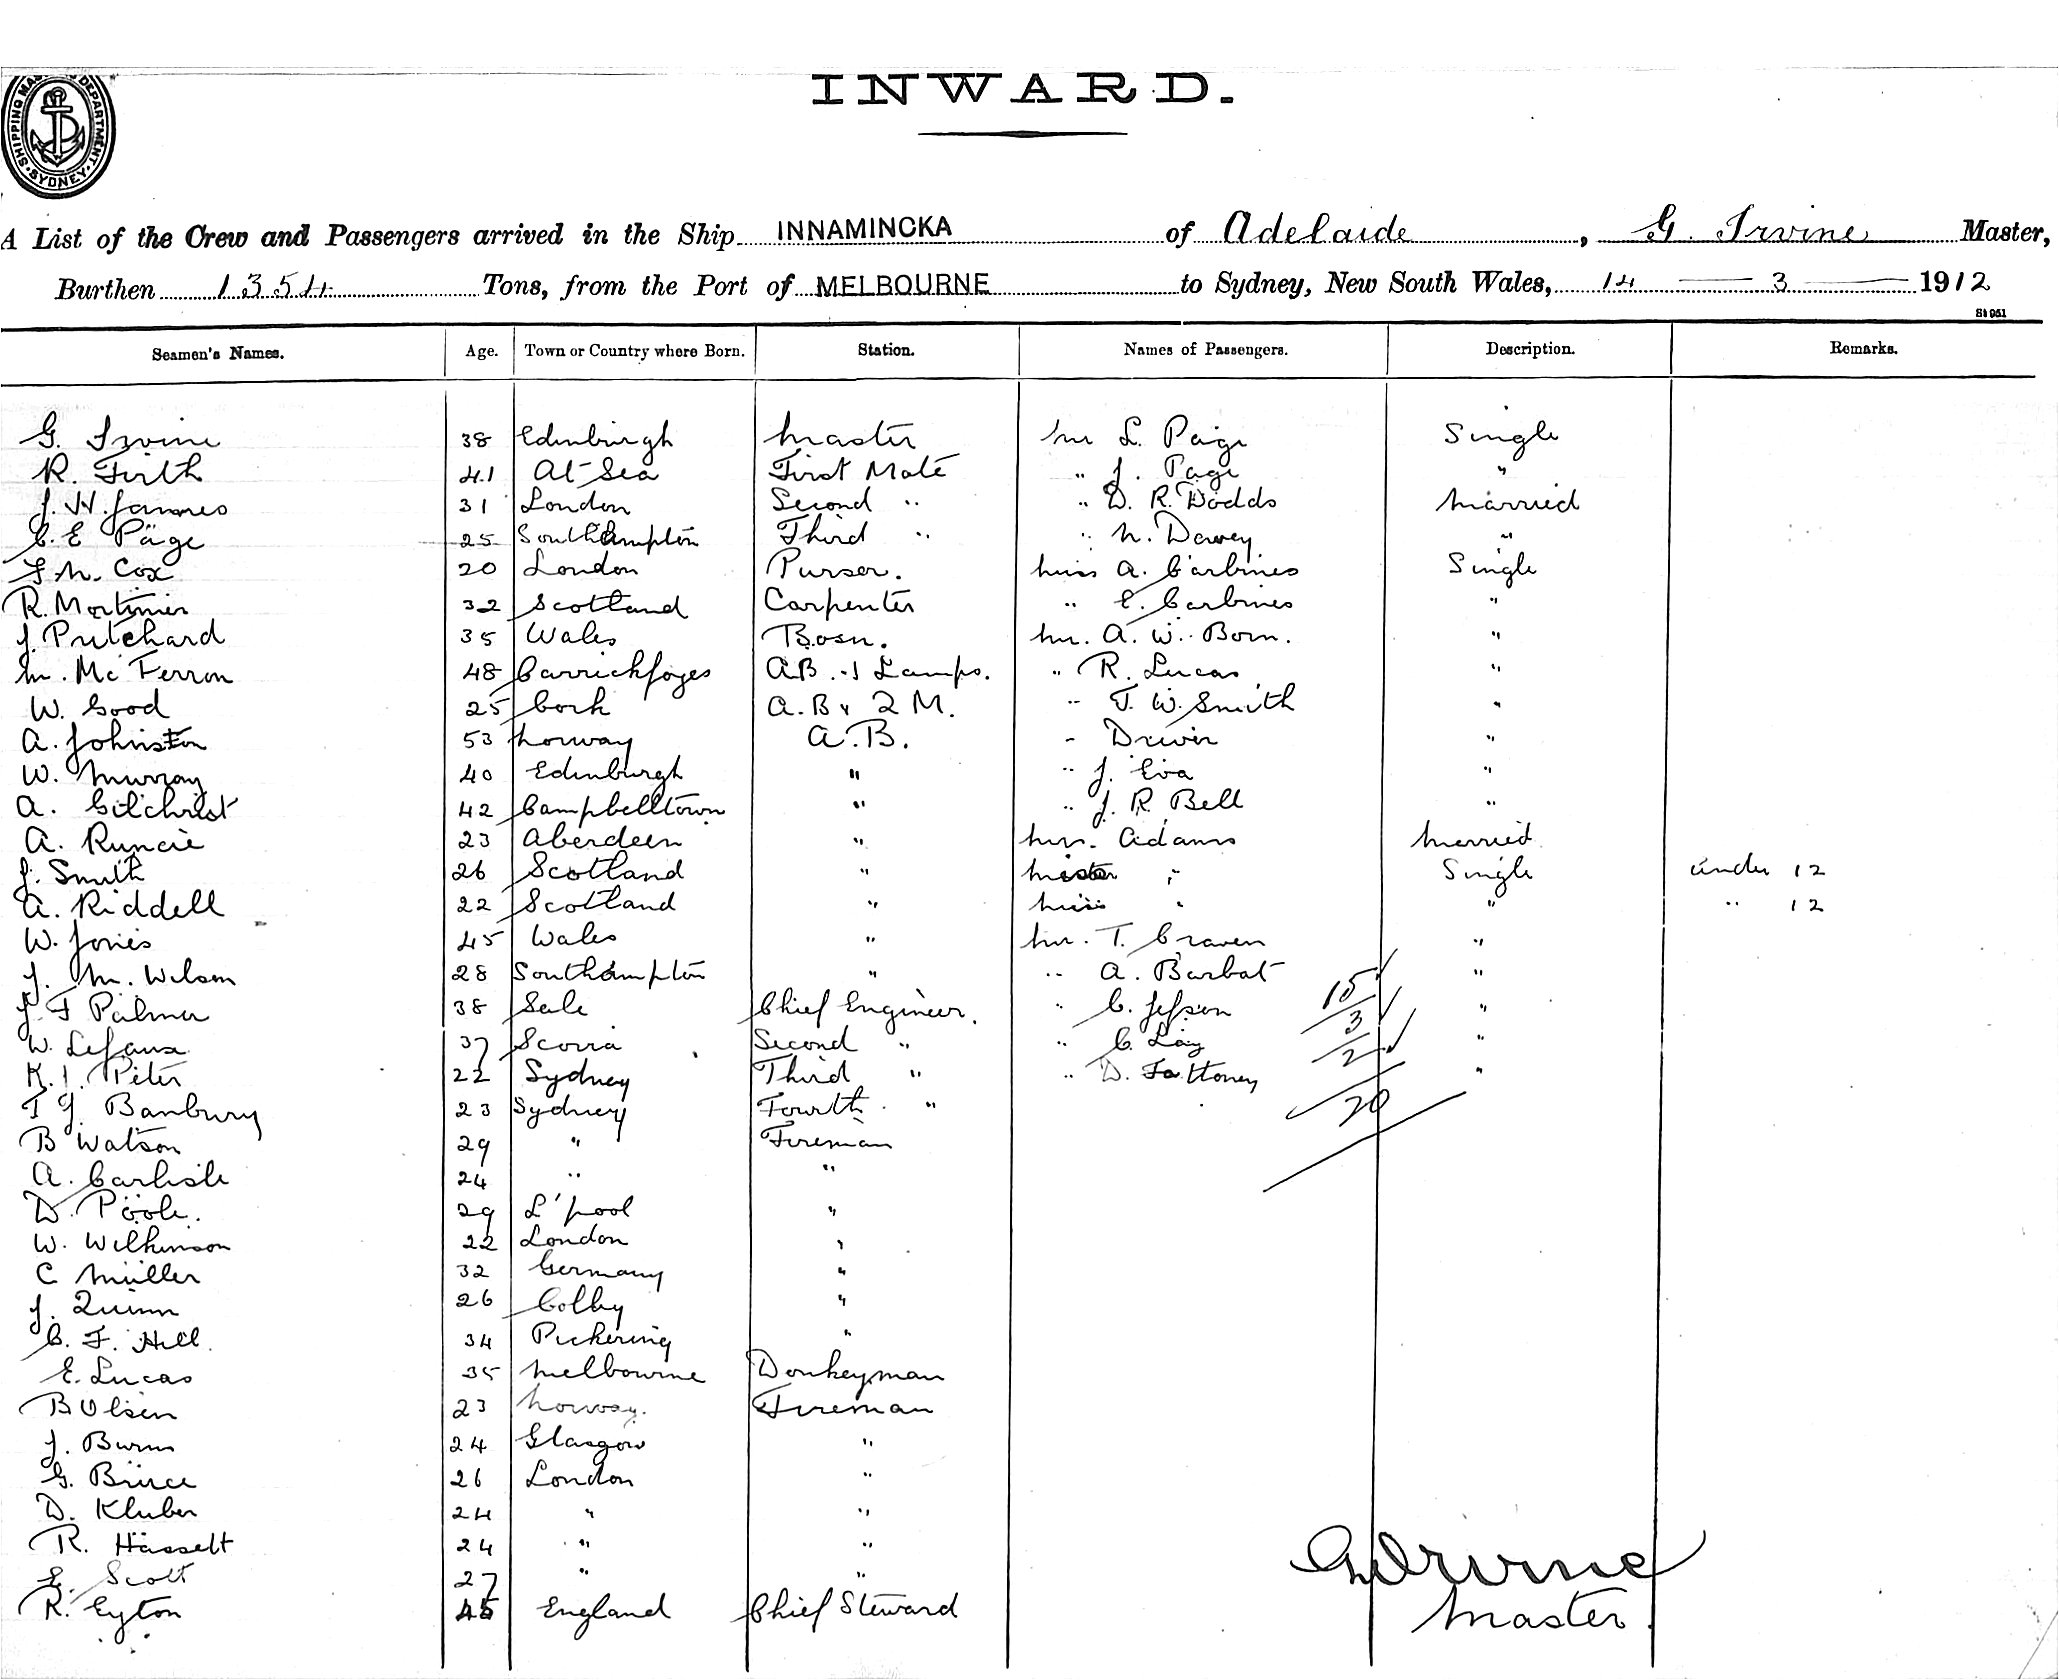 SHIPPING MASTER'S DEPARTMENT · SYDNEY ·
INWARD.
A List of the Crew and Passengers arrived in the Ship INNAMINCKA of Adelaide, G. Irvine Master,
Burthen 1354 Tons, from the Port of MELBOURNE to Sydney, New South Wales, 14 — 3 — 1912
St 951
Seamen's Names. Age. Town or Country where Born. Station. Names of Passengers. Description. Remarks.
G. Irvine 38 Edinburgh Master Mr L. Paige Single
R. Firth 41 At Sea First Mate " J. Page "
J. H. James 31 London Second " " D. R. Dodds Married
C. E Page 25 Southampton Third " " N. Davey "
J M. Cox 20 London Purser. Miss A. Carbines Single
R. Mortimer 32 Scotland Carpenter " E. Carbines "
J. Pritchard 35 Wales Bosn. Mr. A. W. Born. "
M. Mc Ferron 48 Carrickfoges A.B. & Lamps. " R. Lucas "
W. Good 25 Cork A.B & 2 M. " T. W. Smith "
A. Johnston 53 Norway A.B. " Driver "
W. Murray 40 Edinburgh " " J. Eva "
A. Gilchrist 42 Campbelltown " " J. R. Bell "
A. Runcie 23 Aberdeen " Mrs. Adams Married
J. Smith 26 Scotland " Mister " Single under 12
A. Riddell 22 Scotland " Miss " " " 12
W. Jones 45 Wales " Mr. T. Craven "
J. M. Wilson 28 Southampton " " A. Barbat "
J F Palmer 38 Sale Chief Engineer. " C. Jefson 15 "
W. Lefaux 37 Second " " C. Lay 3 "
K. I. Peter 22 Sydney Third " " D. Fattoney 2 "
T G. Banbury 23 Sydney Fourth " 20
B Watson 29 " Fireman
A. Carlisle 24 " "
D. Poole. 29 L'pool "
W. Wilkinson 22 London "
C Müller 32 Germany "
J. Quinn 26 Colby "
C. F. Hill. 34 Pickering "
E. Lucas 35 Melbourne Donkeyman
B Olsen 23 Norway. Fireman
J. Burns 24 Glasgow "
G. Bruce 26 London "
D. Kluber 24 " "
R. Hasselt 24 " "
E. Scott 27 " "
R. Eyton 45 England Chief Steward
G Irvine
Master.